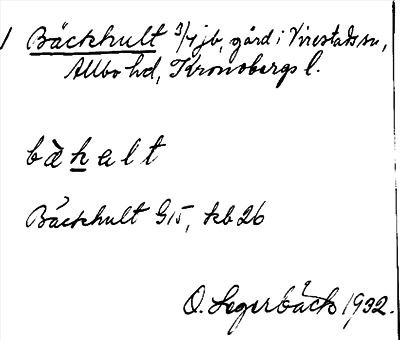 1 Bäckhult 3/4 jb, gård i Virestads sn,
Allbo hd, Kronobergs l.
bàhalt
Bäckhult G15, kb 26
O. Segerbäck 1932.